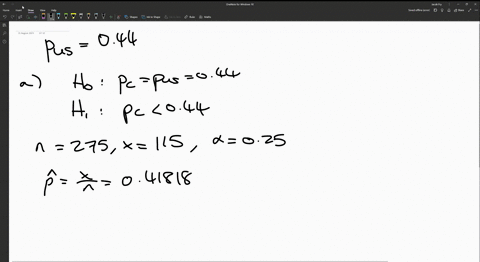 pus = 0.44
a) H₀: pc = pus = 0.44
H₁: pc < 0.44
n = 275, x = 115, α = 0.25
p̂ = x/n = 0.41818